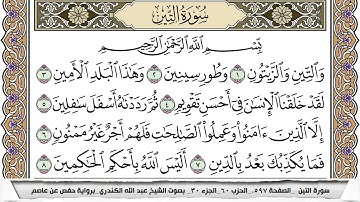 سُورَةُ التِّينِ
بِسْمِ اللَّهِ الرَّحْمَٰنِ الرَّحِيمِ
وَالتِّينِ وَالزَّيْتُونِ ١ وَطُورِ سِينِينَ ٢ وَهَٰذَا الْبَلَدِ الْأَمِينِ ٣
لَقَدْ خَلَقْنَا الْإِنسَٰنَ فِي أَحْسَنِ تَقْوِيمٍ ٤ ثُمَّ رَدَدْنَٰهُ أَسْفَلَ سَٰفِلِينَ ٥
إِلَّا الَّذِينَ ءَامَنُوا وَعَمِلُوا الصَّٰلِحَٰتِ فَلَهُمْ أَجْرٌ غَيْرُ مَمْنُونٍ ٦
فَمَا يُكَذِّبُكَ بَعْدُ بِالدِّينِ ٧ أَلَيْسَ اللَّهُ بِأَحْكَمِ الْحَٰكِمِينَ ٨
سورة التين .. الصفحة ٥٩٧ .. الحزب ٦٠ .. الجزء ٣٠ .. بصوت الشيخ عبد الله الكندري .. برواية حفص عن عاصم